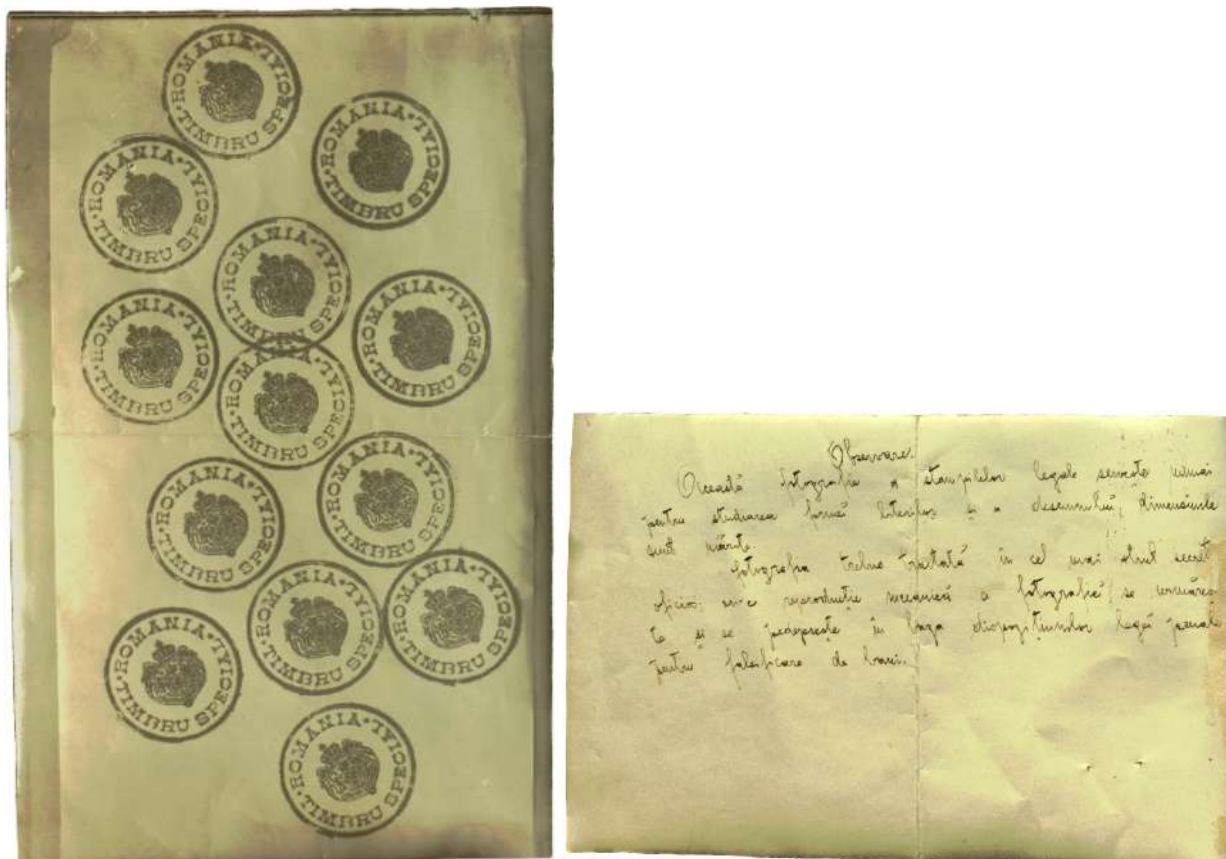 ROMANIA · TIMBRU SPECIAL ·
ROMANIA · TIMBRU SPECIAL ·
ROMANIA · TIMBRU SPECIAL ·
ROMANIA · TIMBRU SPECIAL ·
ROMANIA · TIMBRU SPECIAL ·
ROMANIA · TIMBRU SPECIAL ·
ROMANIA · TIMBRU SPECIAL ·
ROMANIA · TIMBRU SPECIAL ·
ROMANIA · TIMBRU SPECIAL ·
ROMANIA · TIMBRU SPECIAL ·
ROMANIA · TIMBRU SPECIAL ·
ROMANIA · TIMBRU SPECIAL ·
ROMANIA · TIMBRU SPECIAL ·
Observare.
Această fotografie a stampilelor legale servește numai
pentru studiarea formei literilor și a desemnului; dimensiunile
sunt mărite.
Fotografia trebue tratată în cel mai strict secret
oficios; orice reproducție mecanică a fotografiei se urmăreș-
te și se pedepsește în baza dispozițiunilor legii penale
pentru falsificare de bani.